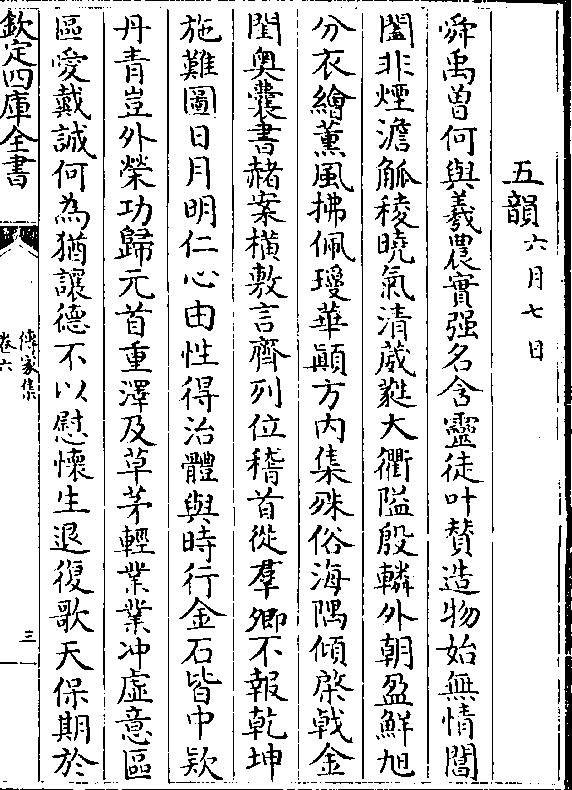 五韻六月七日
舜禹曽何與羲農實强名含靈徒叶賛造物始無情閶
闔非煙澹觚稜曉氣清葳蕤大衢隘殷轔外朝盈鮮旭
分衣繪薰風拂佩瓊華顛方内集殊俗海隅傾啓戟金
閨奥囊書赭案橫敷言齊列位稽首從羣卿不報乾坤
施難圖日月明仁心由性得治體與時行金石皆中欵
丹青豈外榮功歸元首重澤及草茅輕業業冲虛意區
區愛戴誠何為猶讓德不以慰懷生退復歌天保期於
欽定四庫全書
傳家集
卷六
三